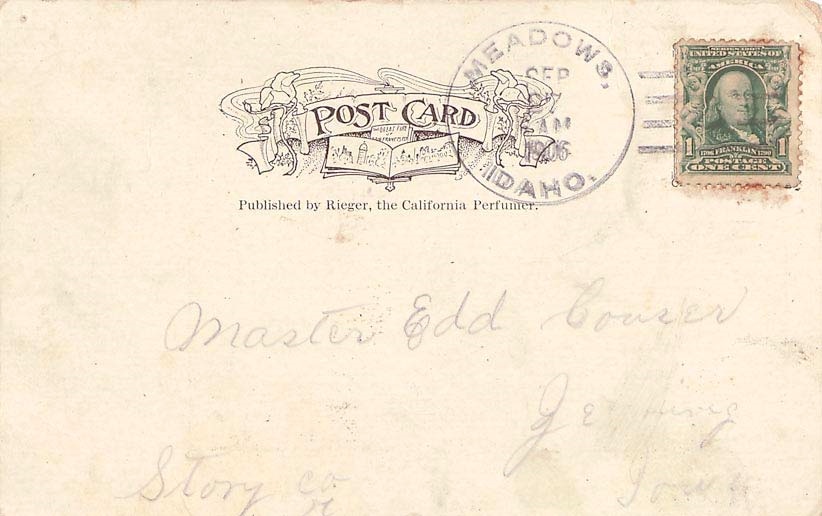 MEADOWS,
SEP
AM
1906
IDAHO.
SERIES 1902
UNITED STATES OF
AMERICA
1 FRANKLIN 1
POSTAGE
ONE CENT
POST CARD
Published by Rieger, the California Perfumer.
Master Edd Couser
Story co
Iowa